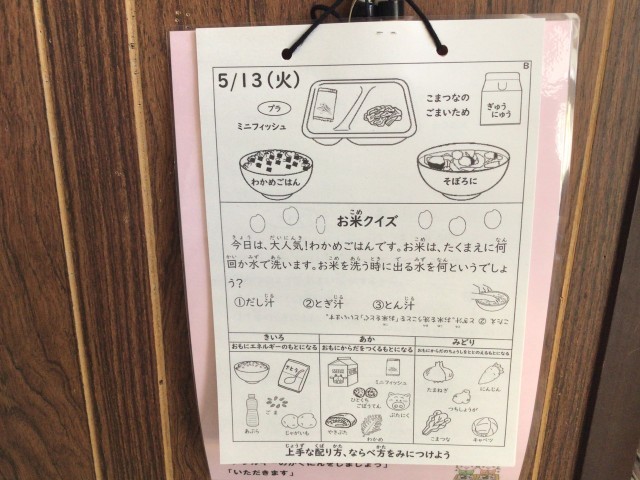 B
5/13(火)
プラ
ミニフィッシュ
こまつなの
ごまいため
ぎゅう
にゅう
わかめごはん
そぼろに
お米クイズ
今日は、大人気!わかめごはんです。お米は、たくまえに何
回か水で洗います。お米を洗う時に出る水を何というでしょ
う?
①だし汁 ②とぎ汁 ③とん汁
こたえ ② とぎ汁。お米を洗うことを「お米をとぐ」といいます。
きいろ
おもにエネルギーのもとになる
さとう
ごま
あぶら
じゃがいも
あか
おもにからだをつくるもとになる
ミニフィッシュ
ひとくち
ごぼうてん
ぶたにく
やきぶた
わかめ
みどり
おもにからだのちょうしをととのえるもとになる
たまねぎ
にんじん
つちしょうが
こまつな
キャベツ
上手な配り方、ならべ方をみにつけよう
「いただきます」